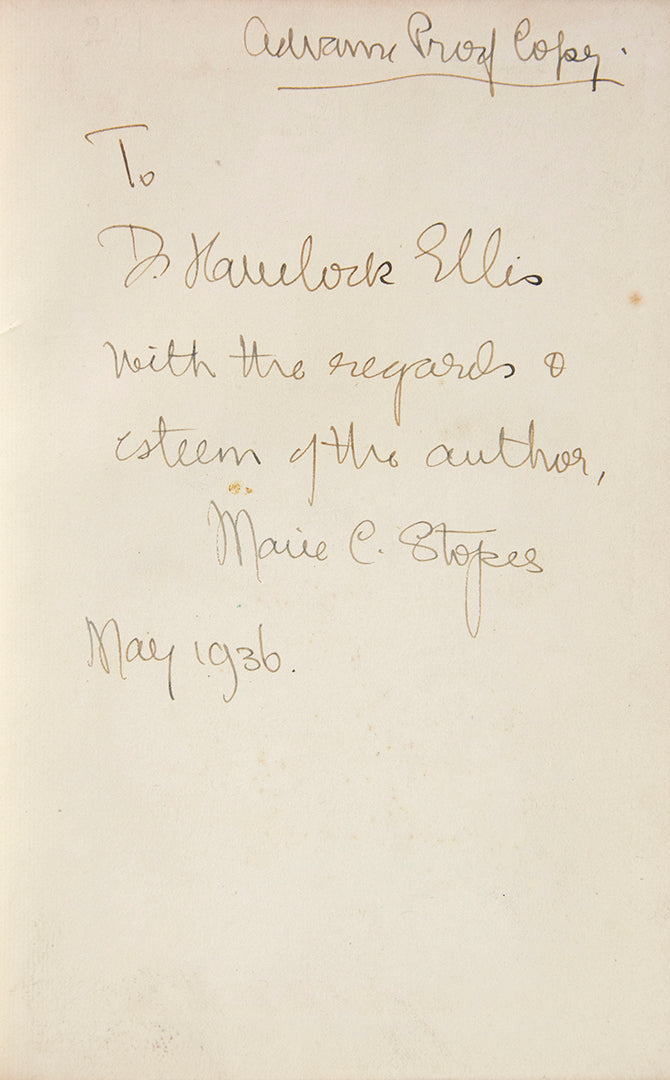 Advance Proof Copy.
To
Dr Havelock Ellis
with the regards &
esteem of the author,
Marie C. Stopes
May 1936.